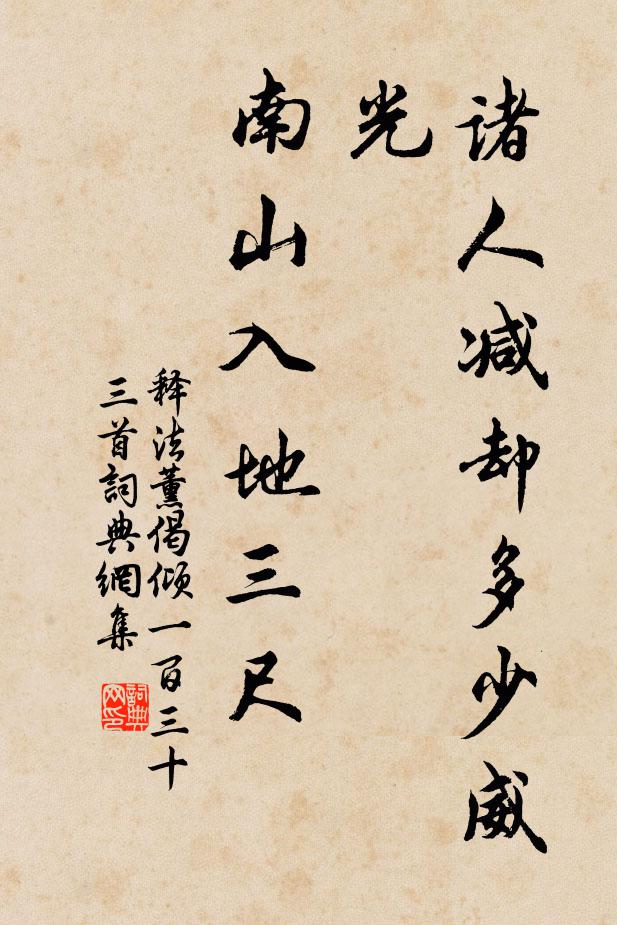 诸人减却多少威
光
南山入地三尺
释法薰偈倾一百三十
三首詞典網集
詞典
网印